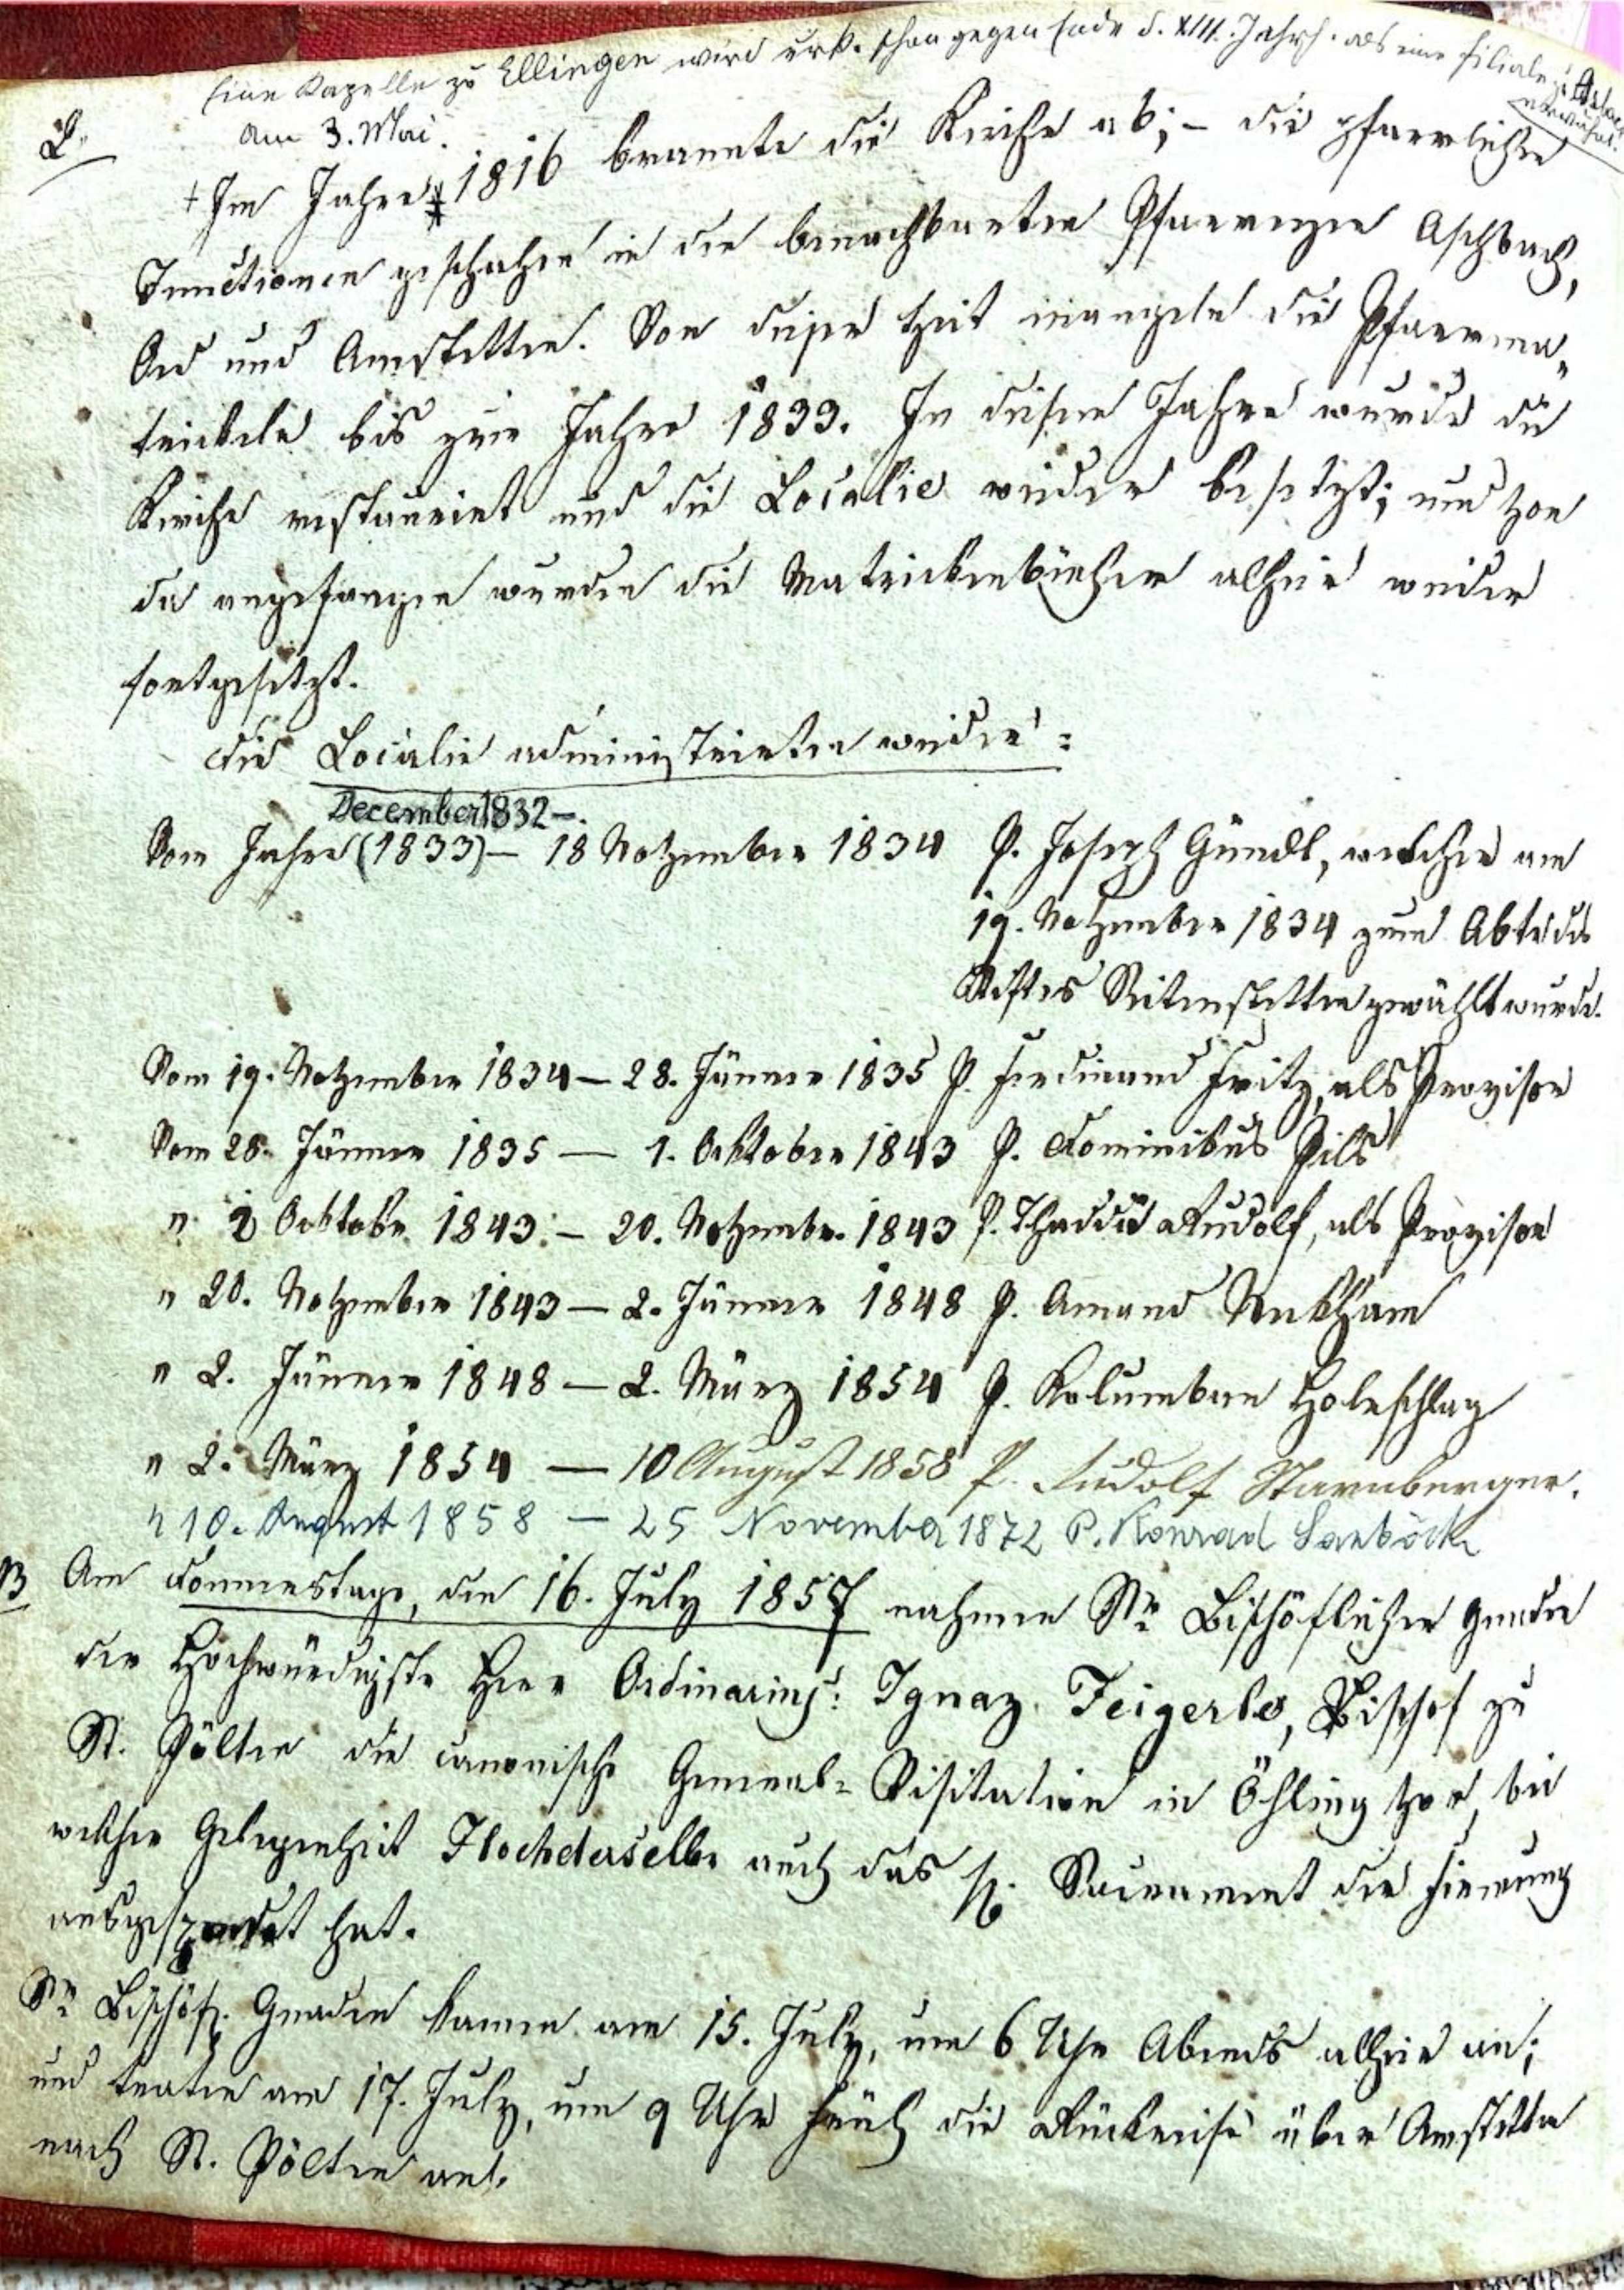 Eine Kapelle zu Ellingen wird urk. schon gegen Ende d. XIII. Jahrh. als eine Filiale zu Asbach
erwähnt.
2.
am 3. Mai
+ Im Jahre 1816 brannte die Kirche ab; – die pfarrlichen
Functionen geschahen in den benachbarten Pfarreyen Aschbach,
Oed und Amstetten. Von dieser Zeit mangeln die Pfarrma„
trickeln bis zum Jahre 1833. In diesem Jahre wurde die
Kirche restauriert und die Localie wieder besetzt; und von
da angefangen wurden die Matrickenbücher alhier wieder
fortgesetzt.
Die Localie administrirten wieder:
December 1832 –
Vom Jahre (1833) – 18 November 1834 P. Joseph Gündl, welcher am
19. November 1834 zum Abte des
Stiftes Seitenstetten gewählt wurde.
Vom 19. November 1834 – 28. Jänner 1835 P. Ferdinand Fritz, als Provisor
Vom 28. Jänner 1835 – 1. Oktober 1843 P. Dominikus Pils
" 1 Oktober 1843 – 20. November 1843 P. Thaddä Rudolf, als Provisor
" 20. November 1843 – 2. Jänner 1848 P. Amand
" 2. Jänner 1848 – 2. März 1854 P. Kolumban Holnschlag
" 2. März 1854 – 10 August 1858 P. Rudolf Starnberger.
" 10. August 1858 – 25 November 1872 P. Konrad
B Am Donnerstage, den 16. July 1857 nahmen Sr. Bischöflichen Gnaden
der Hochwürdigste Herr Ordinarius: Ignaz Feigerle, Bischof zu
St. Pölten die canonische General-Visitation in Öhling vor, bei
welcher Gelegenheit Hochderselbe auch das hl. Sacrament der Firmung
ausgespendet hat.
Sr. Bischöfl. Gnaden kamen am 15. July, um 6 Uhr Abends alhier an;
und traten am 17. July, um 9 Uhr früh die Rückreise über Amstetten
nach St. Pölten an.